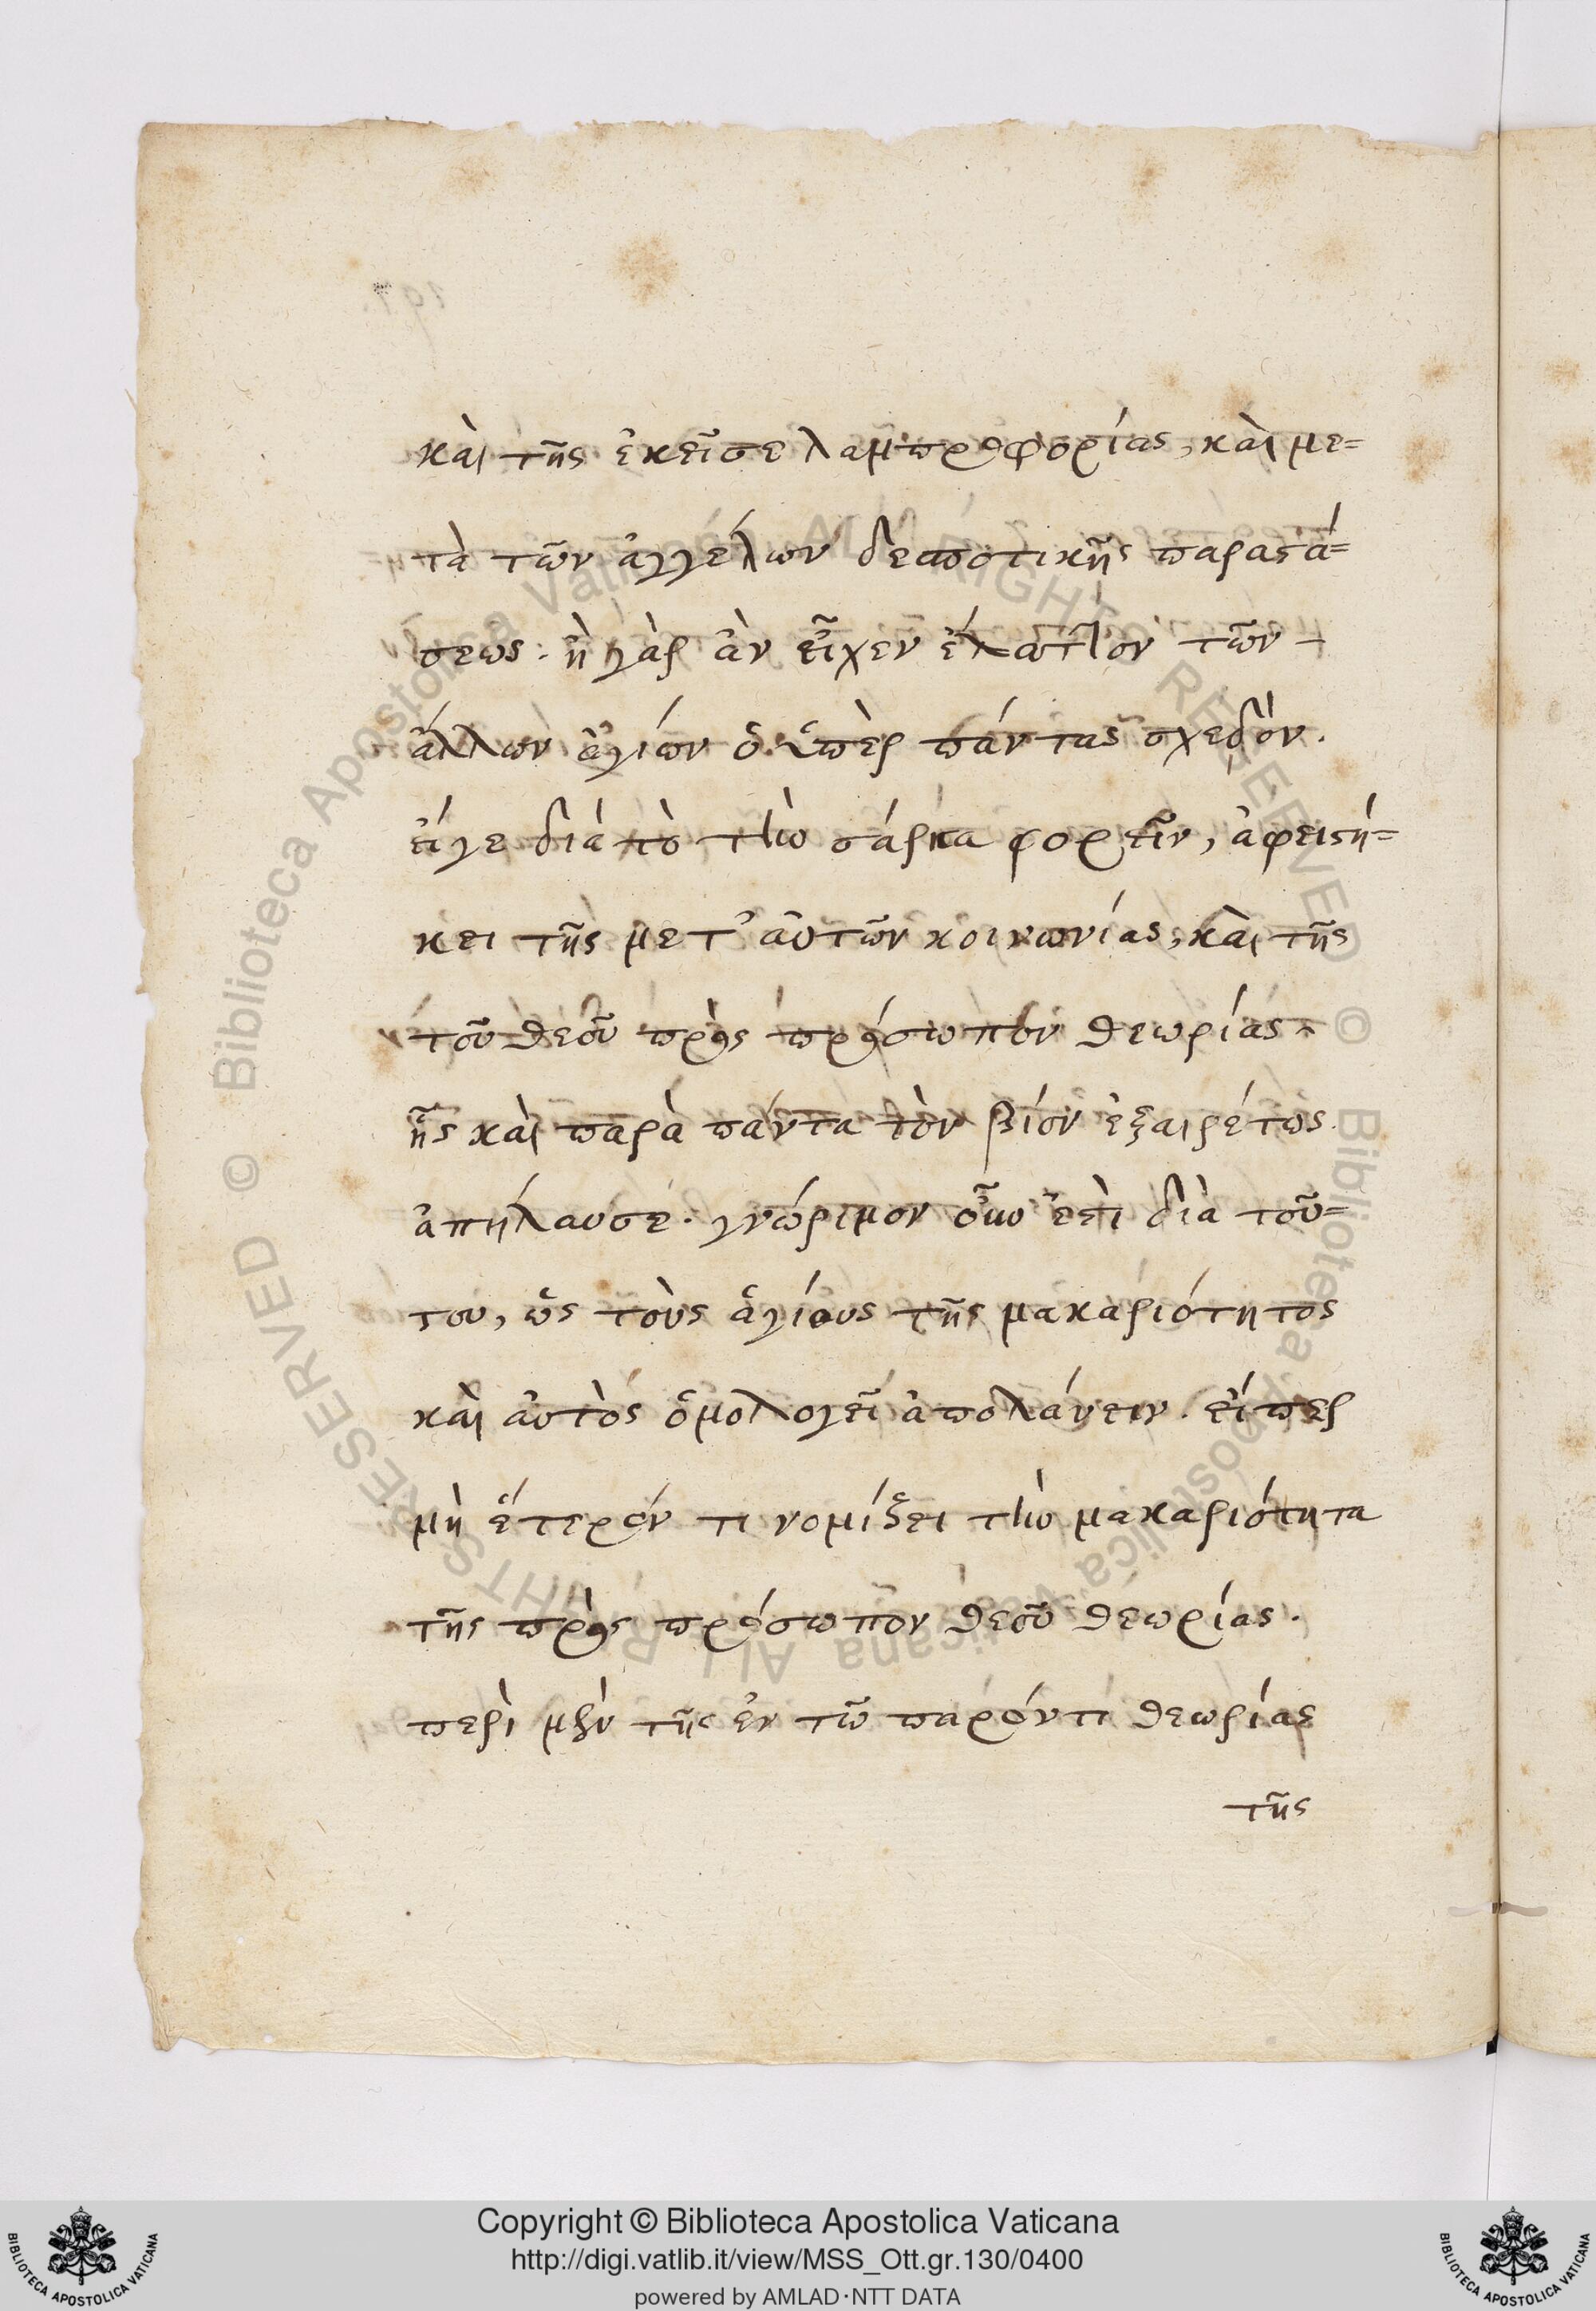 καὶ τῆς ἐκεῖσε λαμπροφορίας, καὶ με=
τὰ τῶν ἀγγέλων δεσποτικῆς παραστά=
σεως. ἢ γὰρ ἂν εἶχεν ἔλαττον τῶν
ἄλλων ἁγίων ὁ ὑπὲρ πάντας σχεδὸν.
εἴγε διὰ τὸ τὴν σάρκα φορεῖν, ἀφειστή=
κει τῆς μετ' αὐτῶν κοινωνίας, καὶ τῆς
τοῦ θεοῦ πρὸς πρόσωπον θεωρίας.
ἧς καὶ παρὰ πάντα τὸν βίον ἐξαιρέτως
ἀπήλαυσε. γνώριμον οὖν ἐστὶ διὰ τού=
του, ὡς τοὺς ἁγίους τῆς μακαριότητος
καὶ αὐτὸς ὁμολογεῖ ἀπολάυειν. εἴπερ
μὴ ἕτερόν τι νομίζει τὴν μακαριότητα
τῆς πρὸς πρόσωπον θεοῦ θεωρίας.
περὶ μὲν τῆς ἐν τῶ παρόντι θεωρίας
τῆς
Copyright © Biblioteca Apostolica Vaticana
http://digi.vatlib.it/view/MSS_Ott.gr.130/0400
powered by AMLAD·NTT DATA
BIBLIOTECA APOSTOLICA VATICANA
BIBLIOTECA APOSTOLICA VATICANA
© Biblioteca Apostolica Vaticana ALL RIGHTS RESERVED © Biblioteca Apostolica Vaticana ALL RIGHTS RESERVED